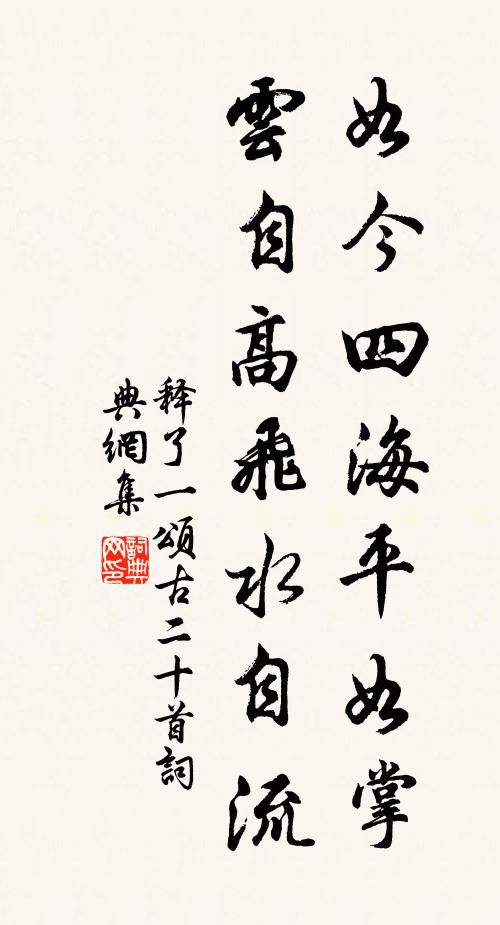 如今四海平如掌
雲自高飛水自流
释了一頌古二十首詞
典網集
詞典
网印